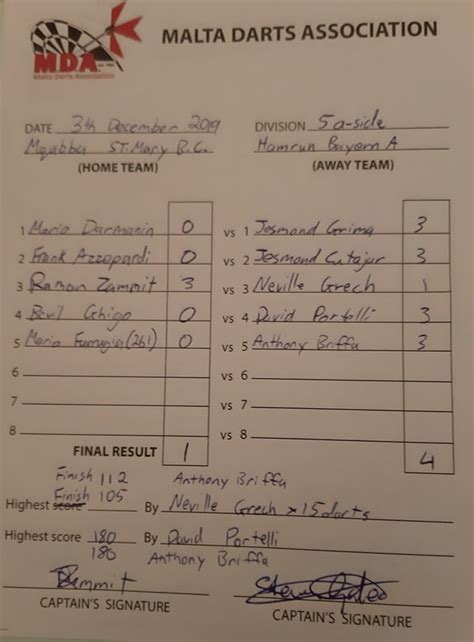 MALTA DARTS ASSOCIATION
M.D.A.
Malta Darts Association
DATE 3th December 2019 DIVISION 5 a-side
Mqabba ST. Mary B.C. Hamrun Bayern A
(HOME TEAM) (AWAY TEAM)
1 Mario Darmanin 0 vs 1 Jesmond Grima 3
2 Frank Azzopardi 0 vs 2 Jesmond Cutajar 3
3 Ramon Zammit 3 vs 3 Neville Grech 1
4 Ghigo 0 vs 4 David Portelli 3
5 Mario Farrugia (261) 0 vs 5 Anthony Briffa 3
6 vs 6
7 vs 7
8 vs 8
FINAL RESULT 1 4
Finish 112 Anthony Briffa
Finish 105
Highest score By Neville Grech x 15 darts
Highest score 180 By David Portelli
180 Anthony Briffa
CAPTAIN'S SIGNATURE CAPTAIN'S SIGNATURE